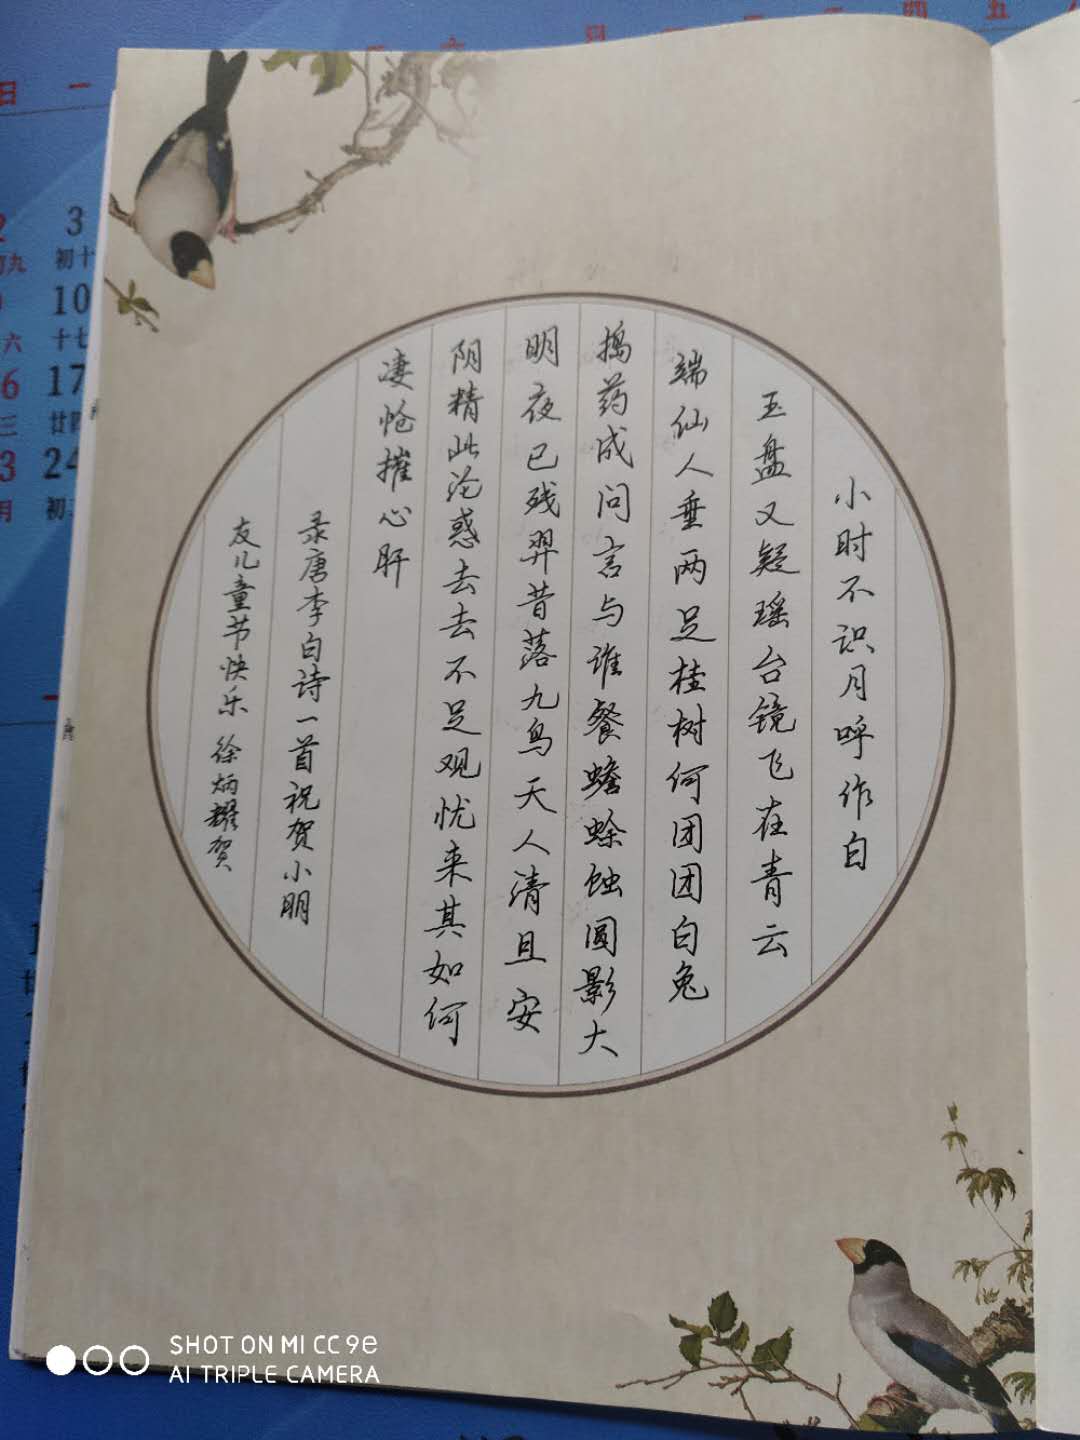 小时不识月呼作白
玉盘又疑瑶台镜飞在青云
端仙人垂两足桂树何团团白兔
捣药成问言与谁餐蟾蜍蚀圆影大
明夜已残羿昔落九乌天人清且安
阴精此沦惑去去不足观忧来其如何
凄怆摧心肝
录唐李白诗一首祝贺小朋
友儿童节快乐 徐炳耀贺
日 一
3
初十
10
十七
17
廿四
24
SHOT ON MI CC 9e
AI TRIPLE CAMERA